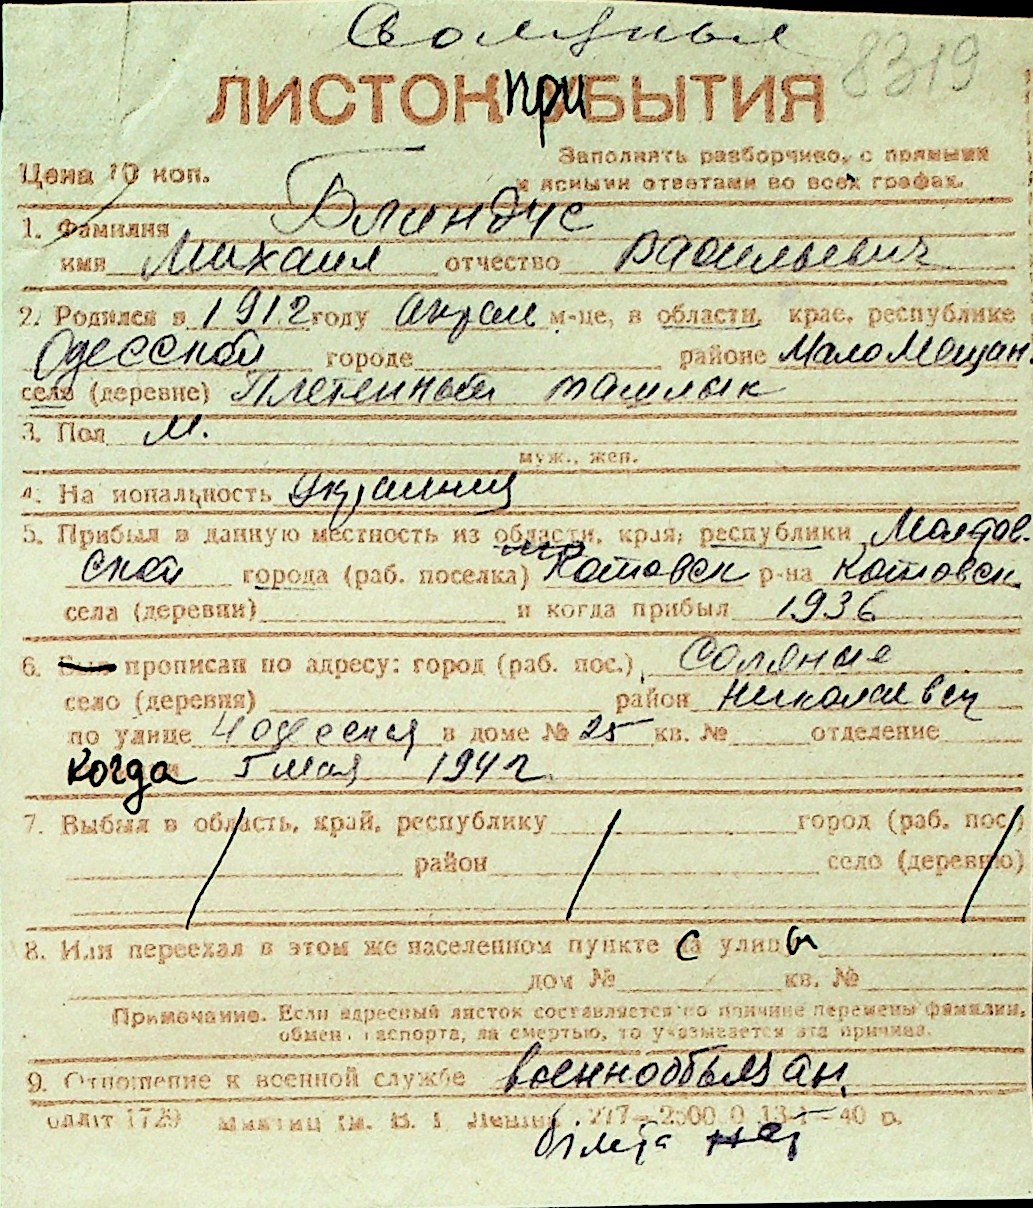 Соляные
8319
ЛИСТОК ПРИБЫТИЯ
Заполнять разборчиво, с прямыми
Цена 10 коп.
и ясными ответами во всех графах.
1. Фамилия Блиндус
имя Михаил отчество Васильевич
2. Родился в 1912 году апреле м-це, в области, крае, республике
Одесской городе районе Мало Мещан.
село (деревне) Плетенный ташлык
3. Пол м.
муж., жен.
4. Национальность украинец
5. Прибыл в данную местность из области, края, республики Молдав.
ской города (раб. поселка) Котовск р-на Котовск
села (деревни) и когда прибыл 1936
6. прописан по адресу: город (раб. пос.) Соляные
село (деревня) район Николаевск
по улице 4 одесская в доме № 25 кв. № отделение
когда 5 мая 1942
7. Выбыл в область, край, республику город (раб. пос.)
район село (деревню)
8. Или переехал в этом же населенном пункте с улицы
дом № кв. №
Примечание. Если адресный листок составляется по причине перемены фамилии,
обмен паспорта, за смертью, то указывается эта причина.
9. Отношение к военной службе военнообязан.
1729 им. В. І. Леніна. 277—2500 0 13-5—40 р.
білета нет